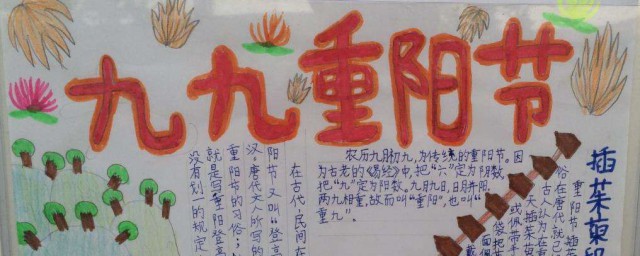 九九重阳节
农历九月初九，为传统的重阳节。因
为古老的《易经》中，把“六”定为阴数，
把“九”定为阳数，九月九日，日月并阳，
两九相重，故而叫“重阳”，也叫“
重九”。
在古代，民间在
阳节又叫“登高
汉。唐代文人所写的
重阳节的习俗；
就是写重阳登高
没有划一的规定
插茱萸
重阳节插茱
俗在唐代就已
古人认为在重
天插茱萸
或佩带于